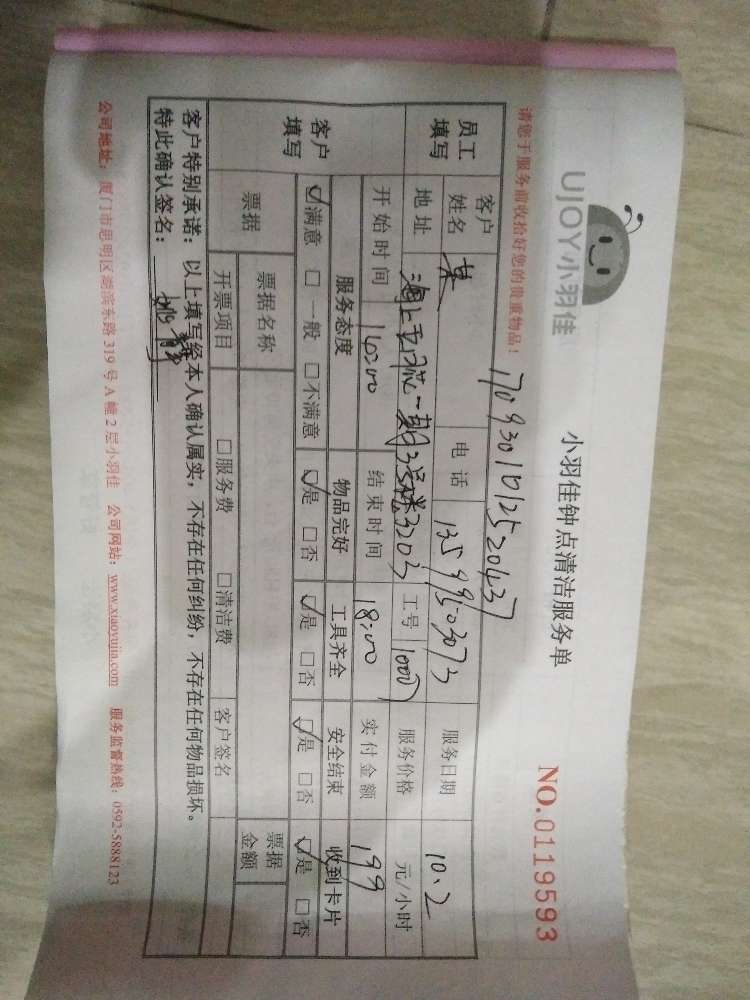 UJOY小羽佳
小羽佳钟点清洁服务单
NO.0119593
请您于服务前收拾好您的贵重物品！
员工填写 客户姓名 电话 服务日期 10.2
地址 3203 工号 服务价格 元/小时
开始时间 14:00 结束时间 18:00 实付金额 199
客户填写 服务态度 物品完好 工具齐全 安全结束 收到卡片
☑满意 □一般 □不满意 ☑是 □否 ☑是 □否 ☑是 □否 ☑是 □否
票据 票据名称 票据金额
开票项目 □服务费 □清洁费 客户签名
客户特别承诺：以上填写经本人确认属实，不存在任何纠纷，不存在任何物品损坏。
特此确认签名：
公司地址：厦门市思明区湖滨东路 319 号 A 幢 2 层小羽佳 公司网站：www.xiaoyujia.com 服务监督热线：0592-5888123